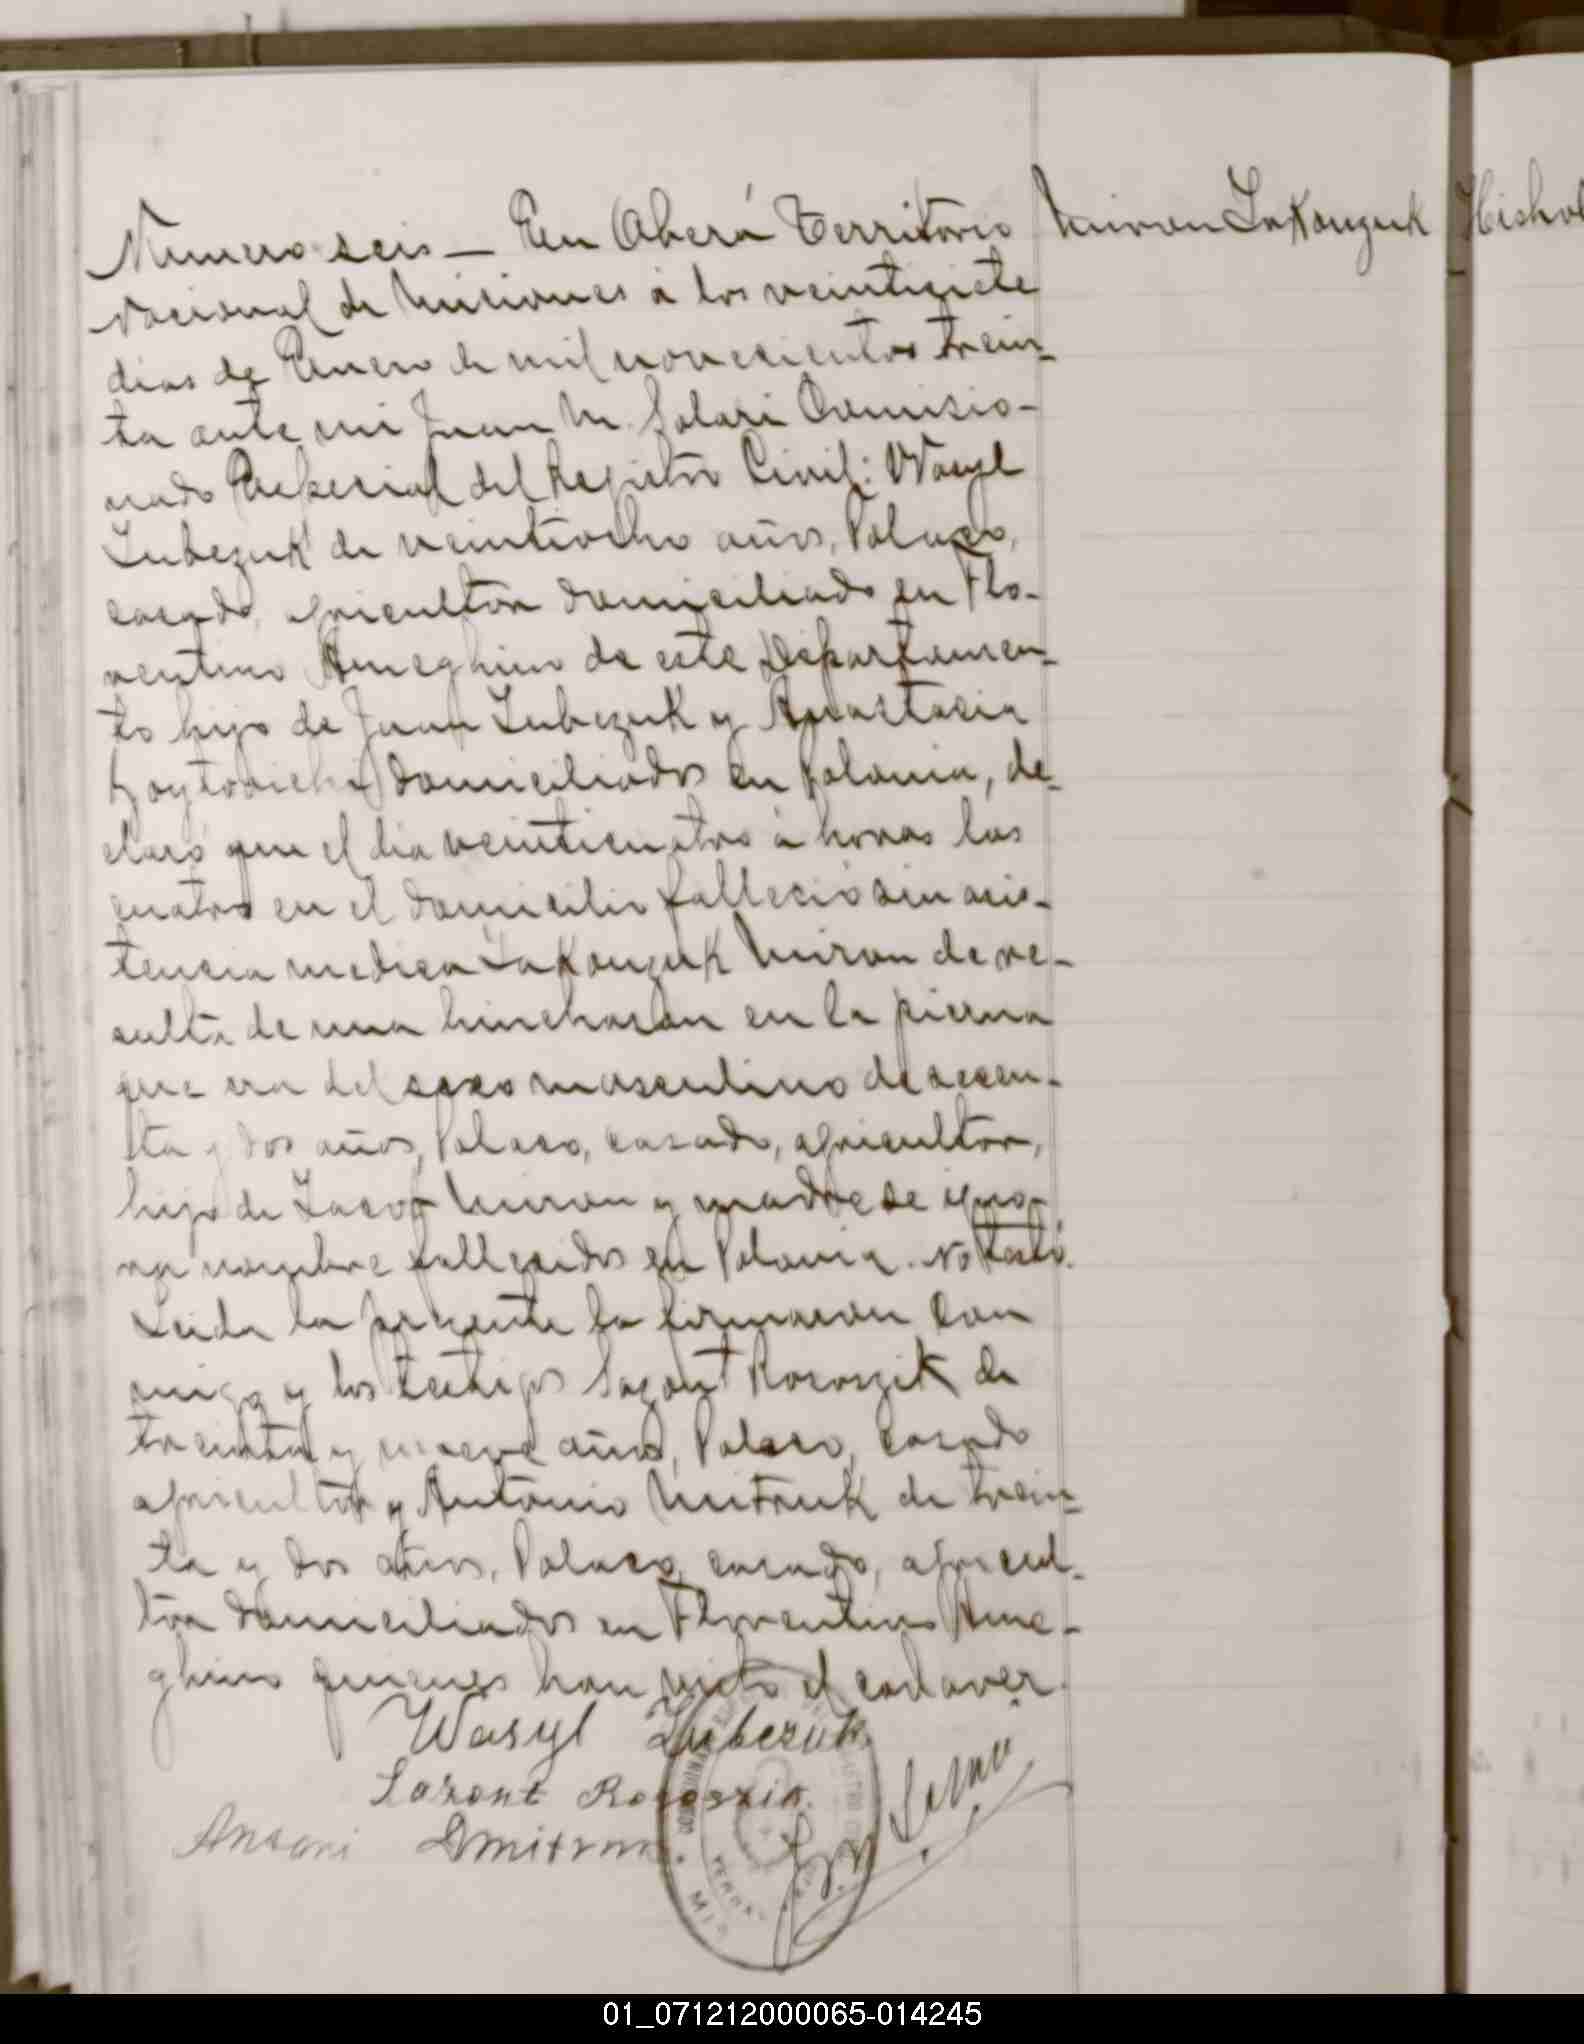 Numero seis — En Oberá Territorio
Miron Lakonzuk
Nacional de Misiones á los veintisiete
dias de Enero de mil novecientos trein-
ta ante mi Juan M. Solari Comisio-
nado Especial del Registro Civil: Wasyl
Lubczuk de veintiocho años, Polaco,
casado, agricultor domiciliado en Flo-
rentino Ameghino de este Departamen-
to hijo de Juan Lubczuk y Anastacia
domiciliados en Polonia, de-
claró que el dia veinticuatro á horas las
cuatro en el domicilio falleció sin asis-
tencia medica Lakonzuk Miron de re-
sulta de una hinchason en la pierna
que era del sexo masculino de secen-
ta y dos años, Polaco, casado, agricultor,
hijo de Jacob Miron y madre se igno-
ra nombre fallecidos en Polonia. No testó.
Leida la presente la firmaron con
migo y los testigos Sazont Rososzik de
treinta y nueve años, Polaco, casado
agricultor y Antonio Mitruk de trein-
ta y dos años, Polaco, casado, agricul-
tor domiciliados en Florentino Ame-
ghino quienes han visto el cadaver.
Wasyl Lubczuk
Sazont
Antoni
01_071212000065-014245